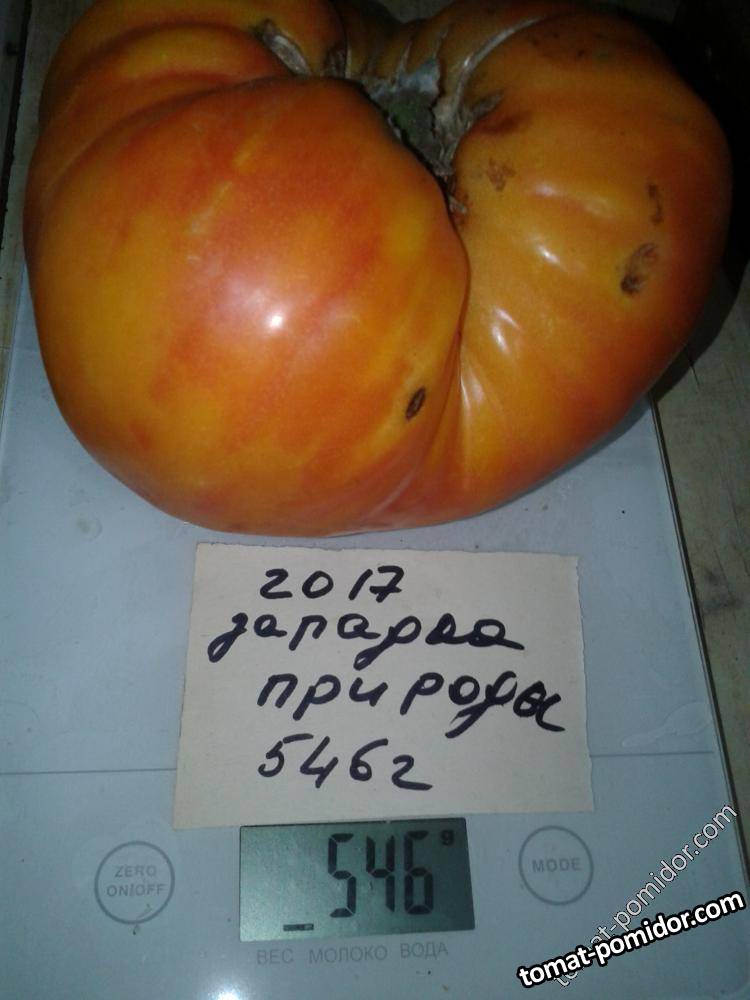 2017
загадка
природы
546г
ZERO
ON/OFF
546 g
MODE
ВЕС МОЛОКО ВОДА
tomat-pomidor.com
tomat-pomidor.com